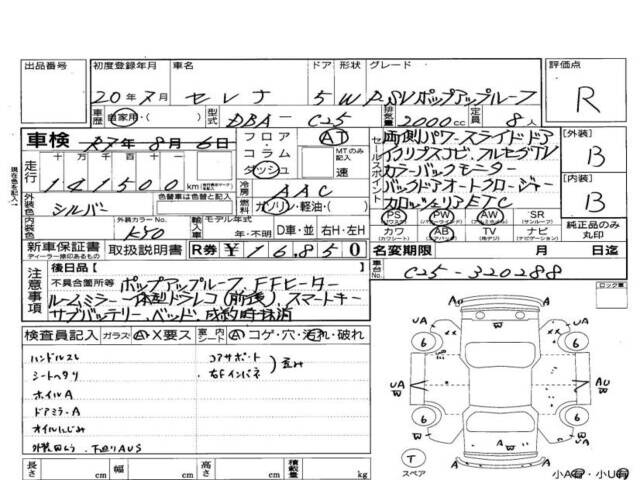 出品番号 初度登録年月 車名 ドア 形状 グレード 評価点
20年7月 セレナ 5 W P.SV ポップアップルーフ R
車歴 自家用・( ) 型式 DBA-C25 排気量 2000cc 定員 8人
車検 R7年8月6日 フロア・コラム・ダッシュ AT MTのみ記入 速
走行 十万 万 千 百 十 一
141500 km
外装色 シルバー 色替車は色替と記入
冷房 AAC
燃料 ガソリン・軽油・( )
内装色 外装カラーNo. K50 輸入車 モデル年式 年・不明 D車・並 右H・左H
セールスポイント
両側パワースライドドア
イクリプスナビ フルセグTV
カラーバックモニター
バックドアオートクロージャー
カロッツェリアETC
PS PW AW SR
(パワステ) (パワーウインドウ) (アルミホイル) (サンルーフ)
カワ AB TV ナビ
(本革シート) (エアバッグ) (純テレビ) (ナビゲーション)
【外装】 B
【内装】 B
純正品のみ丸印
新車保証書 取扱説明書 R券 ¥16,850
ディーラー捺印あるもの
名変期限 月 日迄
車台No. C25-320288
注意事項
後日品【 】
不具合箇所等 ポップアップルーフ、FFヒーター
ルームミラー一体型ドラレコ(前後)、スマートキー
サブバッテリー、ベッド、成約時抹消
ロック業
検査員記入 ガラス A・X要ス 室内シート A コゲ・穴・汚れ・破れ
ハンドルスレ コアサポート
シートヘタリ 右Fインパネ 歪み
ホイルA
ドアミラーA
オイルにじみ
下廻りAUS
uA W A uA W
6 6
uA W AU W
6 6
A W W
T スペア
小A有・小U有
長さ cm 幅 cm 高さ cm 積載量 kg